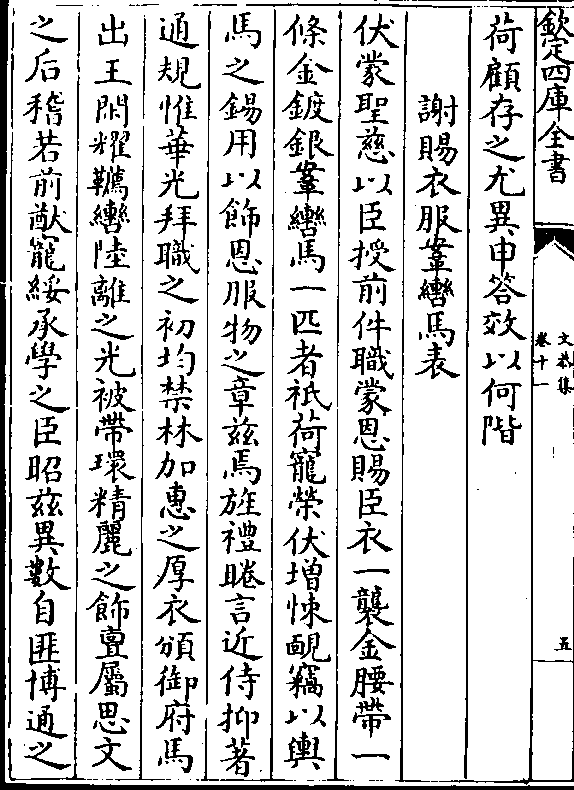 欽定四庫全書
文恭集
卷十一
五
荷顧存之尤異申答效以何階
謝賜衣服鞶轡馬表
伏蒙聖慈以臣授前件職蒙恩賜臣衣一襲金腰帶一
條金鍍銀鞶轡馬一匹者祇荷寵榮伏增悚靦竊以輿
馬之錫用以飾恩服物之章兹焉旌禮睠言近侍抑著
通規惟華光拜職之初均禁林加惠之厚衣頒御府馬
出王閑耀韉轡陸離之光被帶環精麗之飾亶屬思文
之后稽若前猷寵綏承學之臣昭兹異數自匪博通之